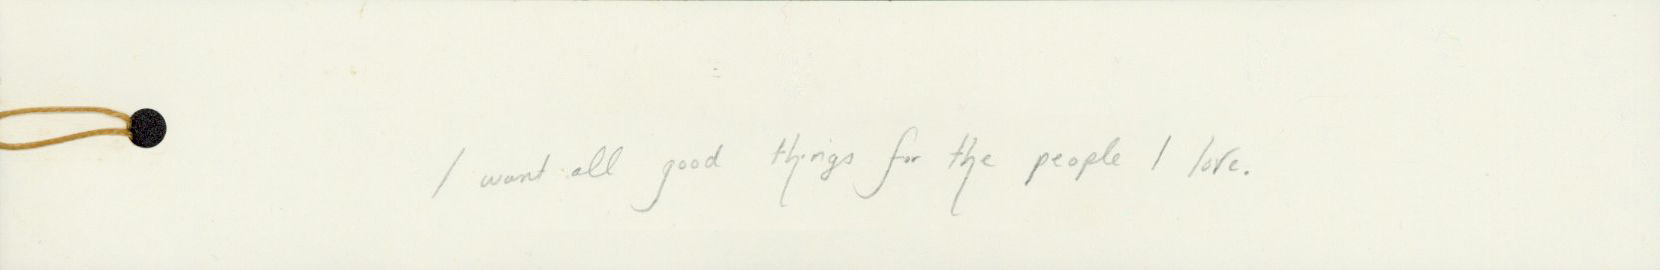 I want all good things for the people I love.